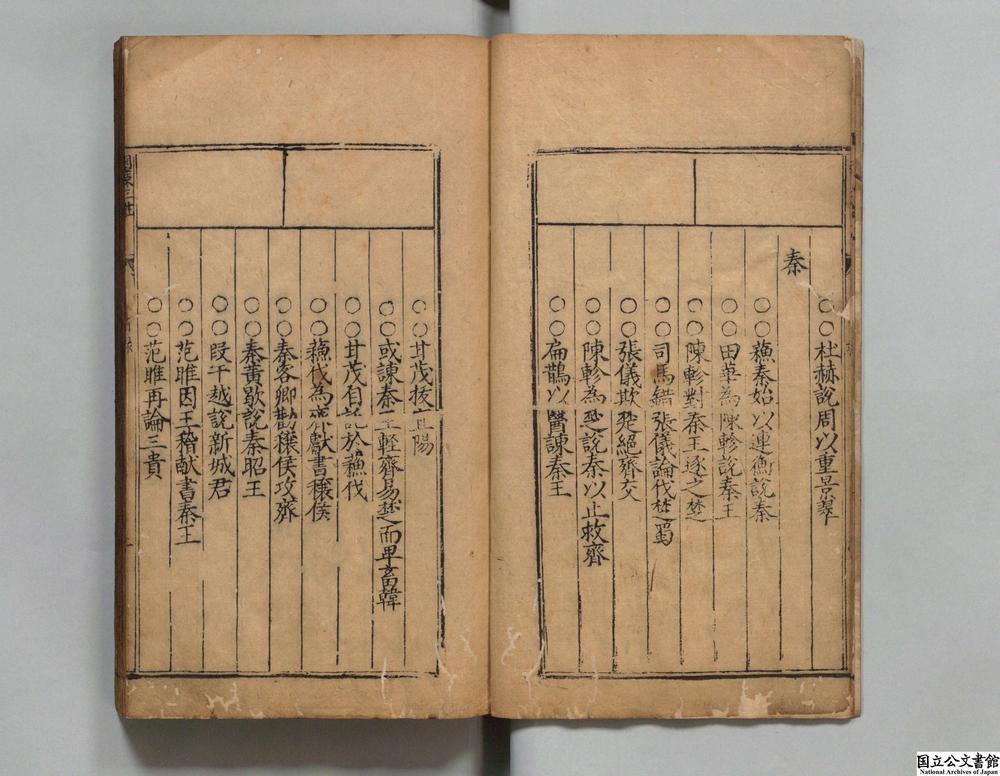 ○○杜赫說周以重景翠
秦
○○蘓秦始以連衡說秦
○○田莘為陳軫說秦王
○○陳軫對秦王逐之楚
○○司馬錯張儀論伐蜀
○○張儀欺楚絕齊交
○○陳軫為楚說秦以止救齊
○○扁鵲以醫諫秦王
○○甘茂拔宜陽
○○或諫秦王輕齊易楚而卑畜韓
○○甘茂自託於蘓伐
○○蘓伐為齊獻書穰侯
○○秦客卿勸穰侯攻齊
○○秦黃歇說秦昭王
○○段干越說新城君
○○范雎因王稽献書秦王
○○范雎再論三貴
国立公文書館
National Archives of Japan